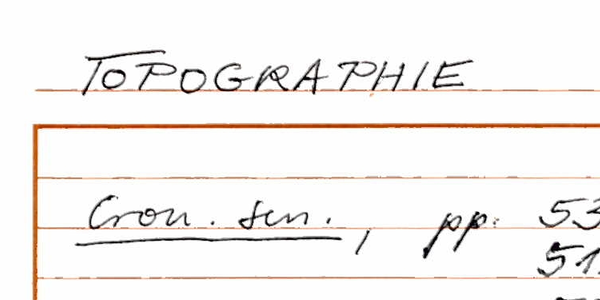 TOPOGRAPHIE
Cron. sen., pp. 53
51